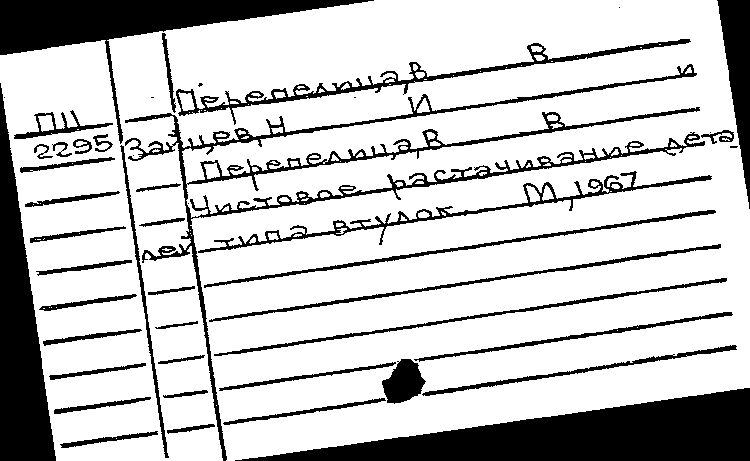 Перепелица, В В
П11
2295 Зайцев, Н И и
Перепелица, В В
Чистовое растачивание дета
лей типа втулок. М, 1967